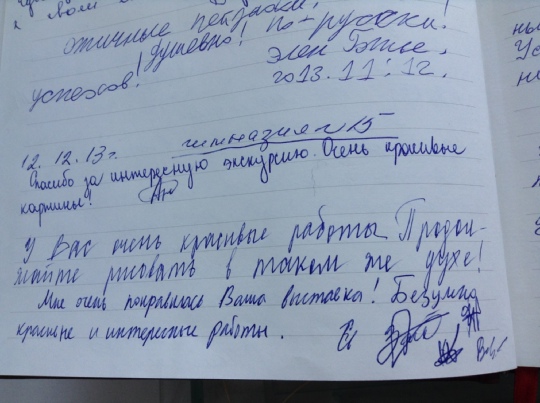 отличные пейзажи!
душевно! по-русски!
успехов!
2013.11.12.
12.12.13г. гимназия №15
Спасибо за интересную экскурсию. Очень красивые
картины!
У Вас очень красивые работы. Продол-
жайте рисовать в таком же духе!
Мне очень понравилась Ваша выставка! Безумно
красивые и интересные работы.